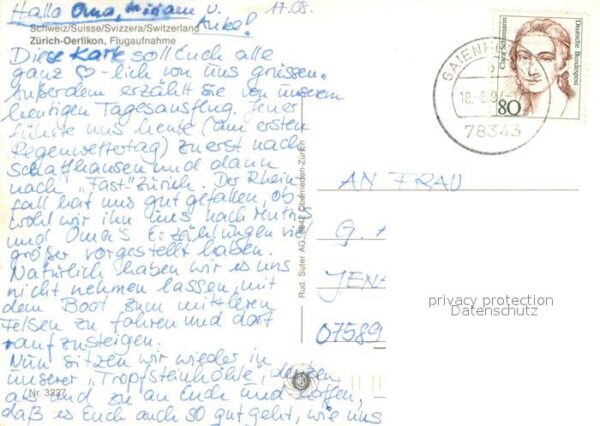 Hallo Oma, Miriam u. Anke! 17.08.
Schweiz/Suisse/Svizzera/Switzerland
Zürich-Oerlikon, Flugaufnahme
Diese Karte soll Euch alle
ganz ♡-lich von uns grüssen.
Außerdem erzählt Sie von unserem
heutigen Tagesausflug. Jener
führte uns heute (am ersten
Regenwettertag) zuerst nach
Schaffhausen und dann
nach "Fast" Zürich. Der Rhein-
fall hat uns gut gefallen, ob-
wohl wir ihn uns nach Muttis
und Oma's Erzählungen viel
größer vorgestellt haben.
Natürlich haben wir es uns
nicht nehmen lassen, mit
dem Boot zum mittleren
Felsen zu fahren und dort
raufzusteigen.
Nun sitzen wir wieder in
unserer "Tropfsteinhöhle", denken
als und zu an Euch und hoffen,
daß es Euch auch so gut geht, wie uns
Nr. 3337
Rud. Suter AG, 8942 Oberrieden-Zürich
GAIENH
18.-8.9
78343
Deutsche Bundespost
80
AN FRAU
G.
JENA
07589
privacy protection
Datenschutz